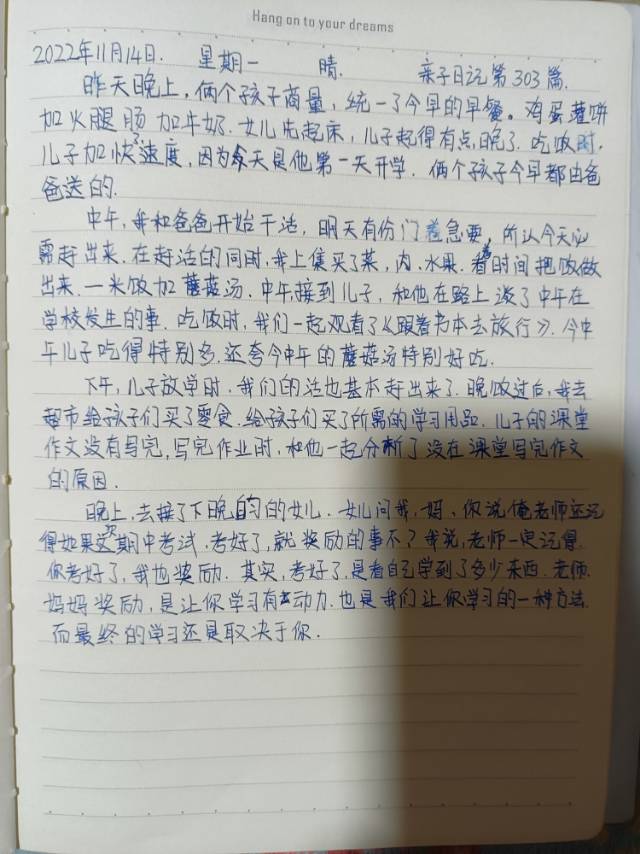 Hang on to your dreams
2022年11月14日. 星期一 晴. 亲子日记第303篇.
昨天晚上,俩个孩子商量,统一了今早的早餐。鸡蛋灌饼
加火腿肠加牛奶.女儿先起床,儿子起得有点晚了.吃饭时,
儿子加快了速度,因为今天是他第一天开学.俩个孩子今早都由爸
爸送的.
中午,我和爸爸开始干活,明天有份门着急要,所以今天必
需赶出来.在赶活的同时,我上集买了菜,肉,水果.看着时间把饭做
出来.一米饭加蘑菇汤.中午,接到儿子,和他在路上谈了中午在
学校发生的事.吃饭时,我们一起观看了《跟着书本去旅行》.今中
午儿子吃得特别多.还夸今中午的蘑菇汤特别好吃.
下午,儿子放学时.我们的活也基本赶出来了.晚饭过后,我去
超市给孩子们买了零食.给孩子们买了所需的学习用品.儿子的课堂
作文没有写完,写完作业时,和他一起分析了没在课堂写完作文
的原因.
晚上,去接了下晚自习的女儿.女儿问我,妈、你说俺老师还记
得如果这次期中考试.考好了,就奖励的事不?我说,老师一定记得.
你考好了,我也奖励.其实,考好了,是看自己学到了多少东西.老师.
妈妈奖励,是让你学习有动力.也是我们让你学习的一种方法.
而最终的学习还是取决于你.